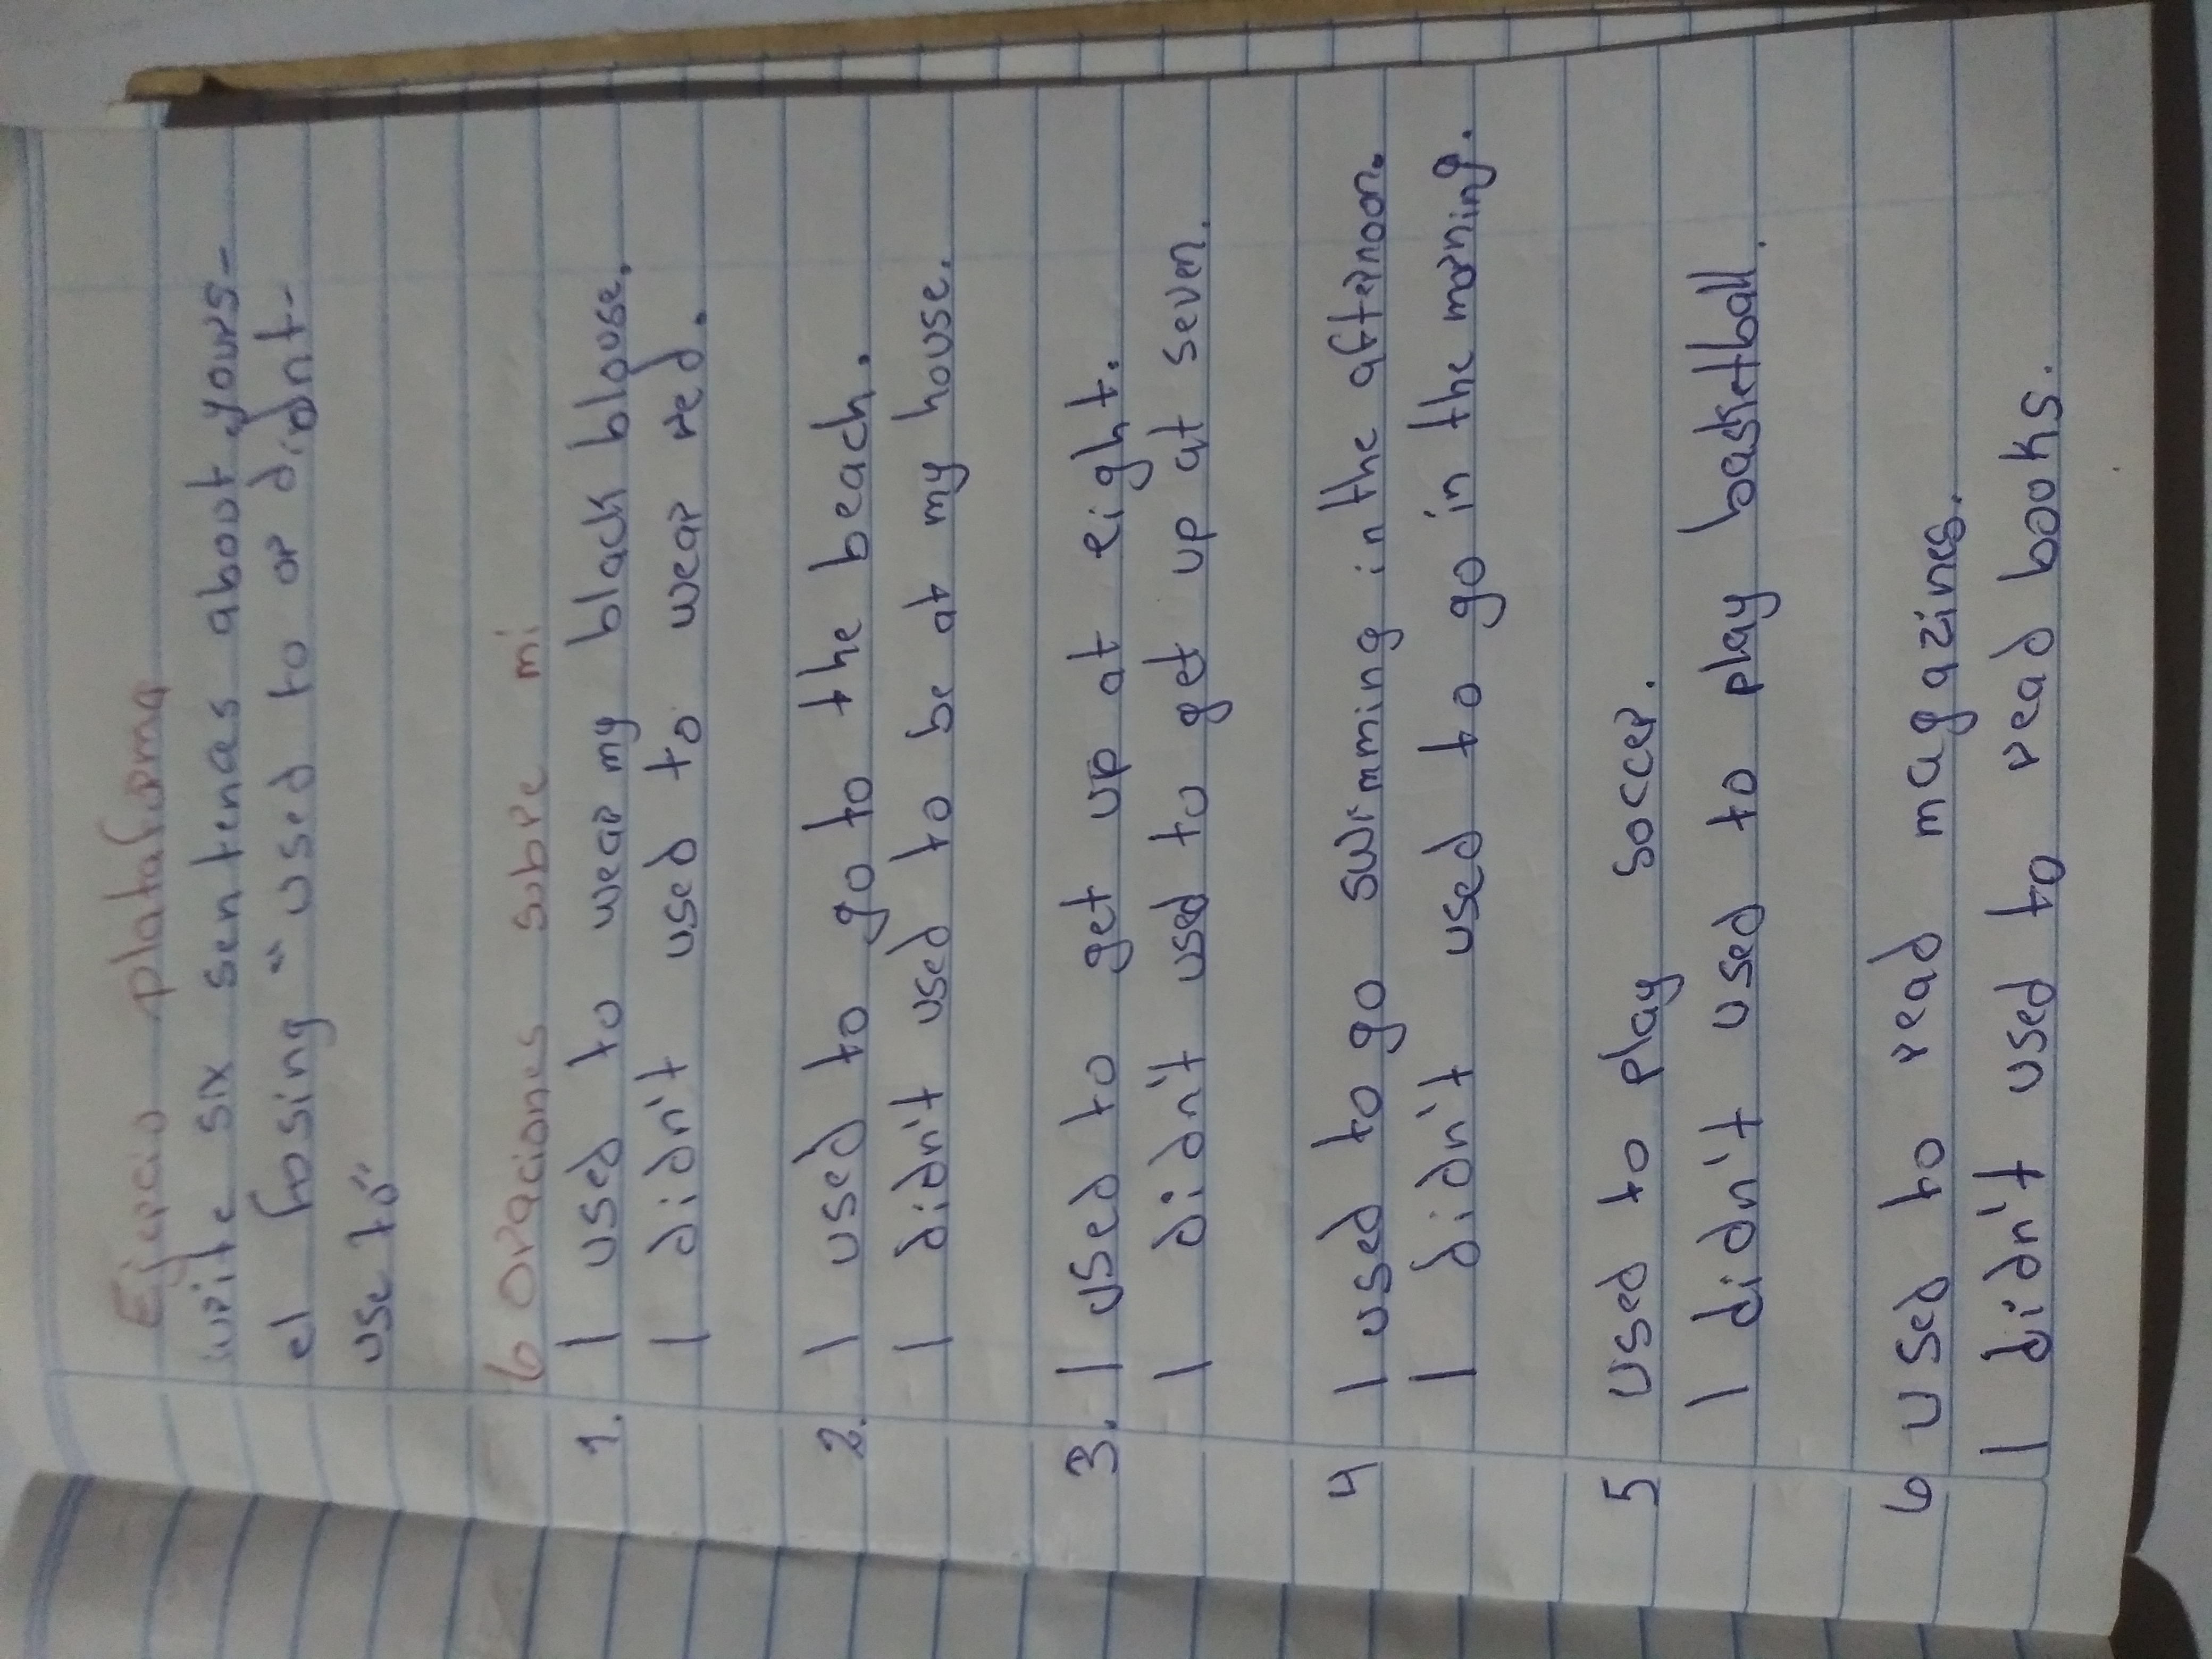 Ejercio plataforma
write six sentenas about yours-
el fosing "used to or didnt-
use to"
6 oraciones sobre mi
1. I used to wear my black blouse.
I didn't used to wear red.
2. I used to go to the beach.
I didn't used to be at my house.
3. I used to get up at eight.
I didn't used to get up at seven.
4 I used to go swimming in the afternoon.
I didn't used to go in the morning.
5 used to play soccer.
I didn't used to play basketball.
6 used to read magazines.
I didn't used to read books.